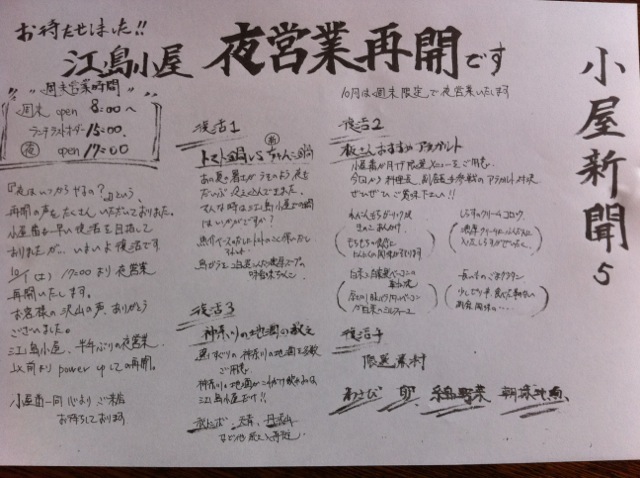 お待たせしました!!
江ノ島小屋 夜営業再開です
小屋新聞5
週末営業時間
週末 open 8:00〜
ランチラストオーダー 15:00
夜 open 17:00
10月は週末限定で夜営業いたします
『夜はいつからやるの?』という、
再開の声をたくさんいただいておりました。
小屋番一同早い復活を目指して
おりましたが、いよいよ復活です
10/1(土) 17:00より夜営業
再開いたします。
お客様の沢山の声、ありがとう
ございました。
江ノ島小屋、半年ぶりの夜営業、
以前よりpower upしての再開。
小屋番一同心よりご来店
お待ちしております
復活1
トマト鍋 VS ちゃんこ鍋
あの夏の暑さがうそのよう、夜も
だいぶ冷えこんできました。
そんな時は江ノ島小屋の鍋
はいかがですか?
復活3
神奈川の地酒の数々
選りすぐりの神奈川の地酒を多数
ご用意
神奈川の地酒がこれだけ飲めるのは
江ノ島小屋だけ!!
など他数々ご用意
復活2
板さんおすすめアラカルト
小屋番が月イチ限定メニューをご用意
ぜひぜひご賞味下さい!!
しらすのクリームコロッケ
復活4
限定素材
わさび 卵 鎌倉野菜 朝採地魚